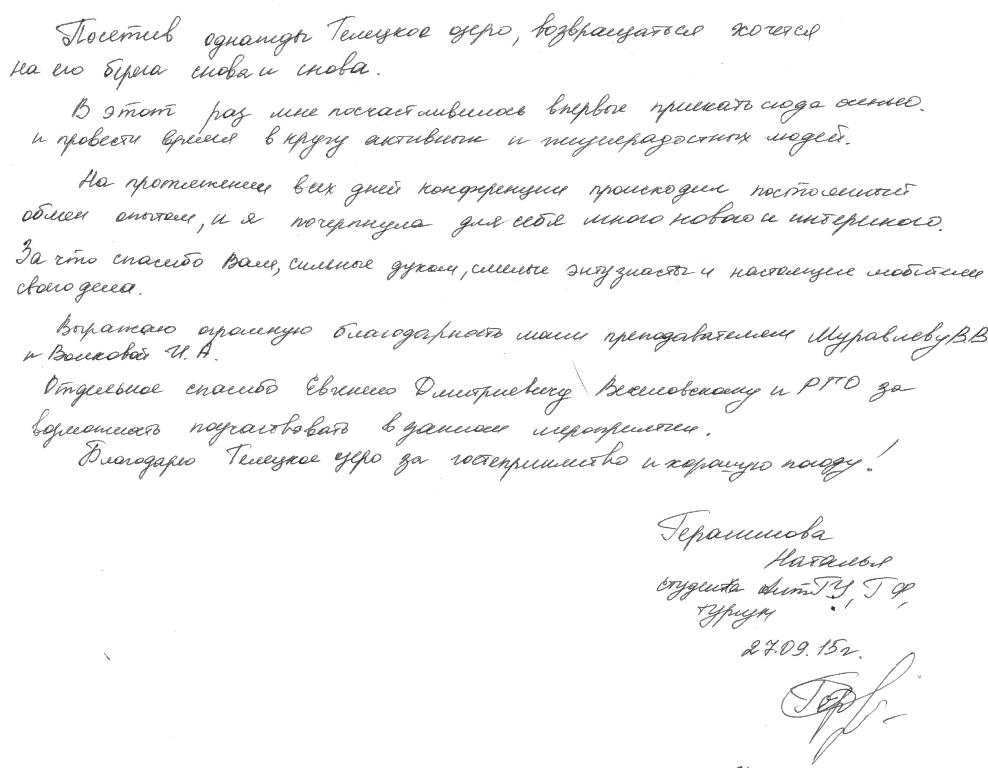 Посетив однажды Телецкое озеро, возвращаться хочется
на его берега снова и снова.
В этот раз мне посчастливилось впервые приехать сюда осенью.
и провести время в кругу активных и жизнерадостных людей.
На протяжении всех дней конференции происходил постоянный
обмен опытом, и я почерпнула для себя много нового и интересного.
За что спасибо Вам, сильные духом, смелые энтузиасты и настоящие любители
своего дела.
Выражаю огромную благодарность моим преподавателям Муравлеву В.В
и Волковой И.А.
Отдельное спасибо Евгению Дмитриевичу Веселовскому и РГО за
возможность поучаствовать в данном мероприятии.
Благодарю Телецкое озеро за гостеприимство и хорошую погоду!
Герасимова
Наталья
студентка АлтГУ, ГФ,
туризм
27.09.15г.